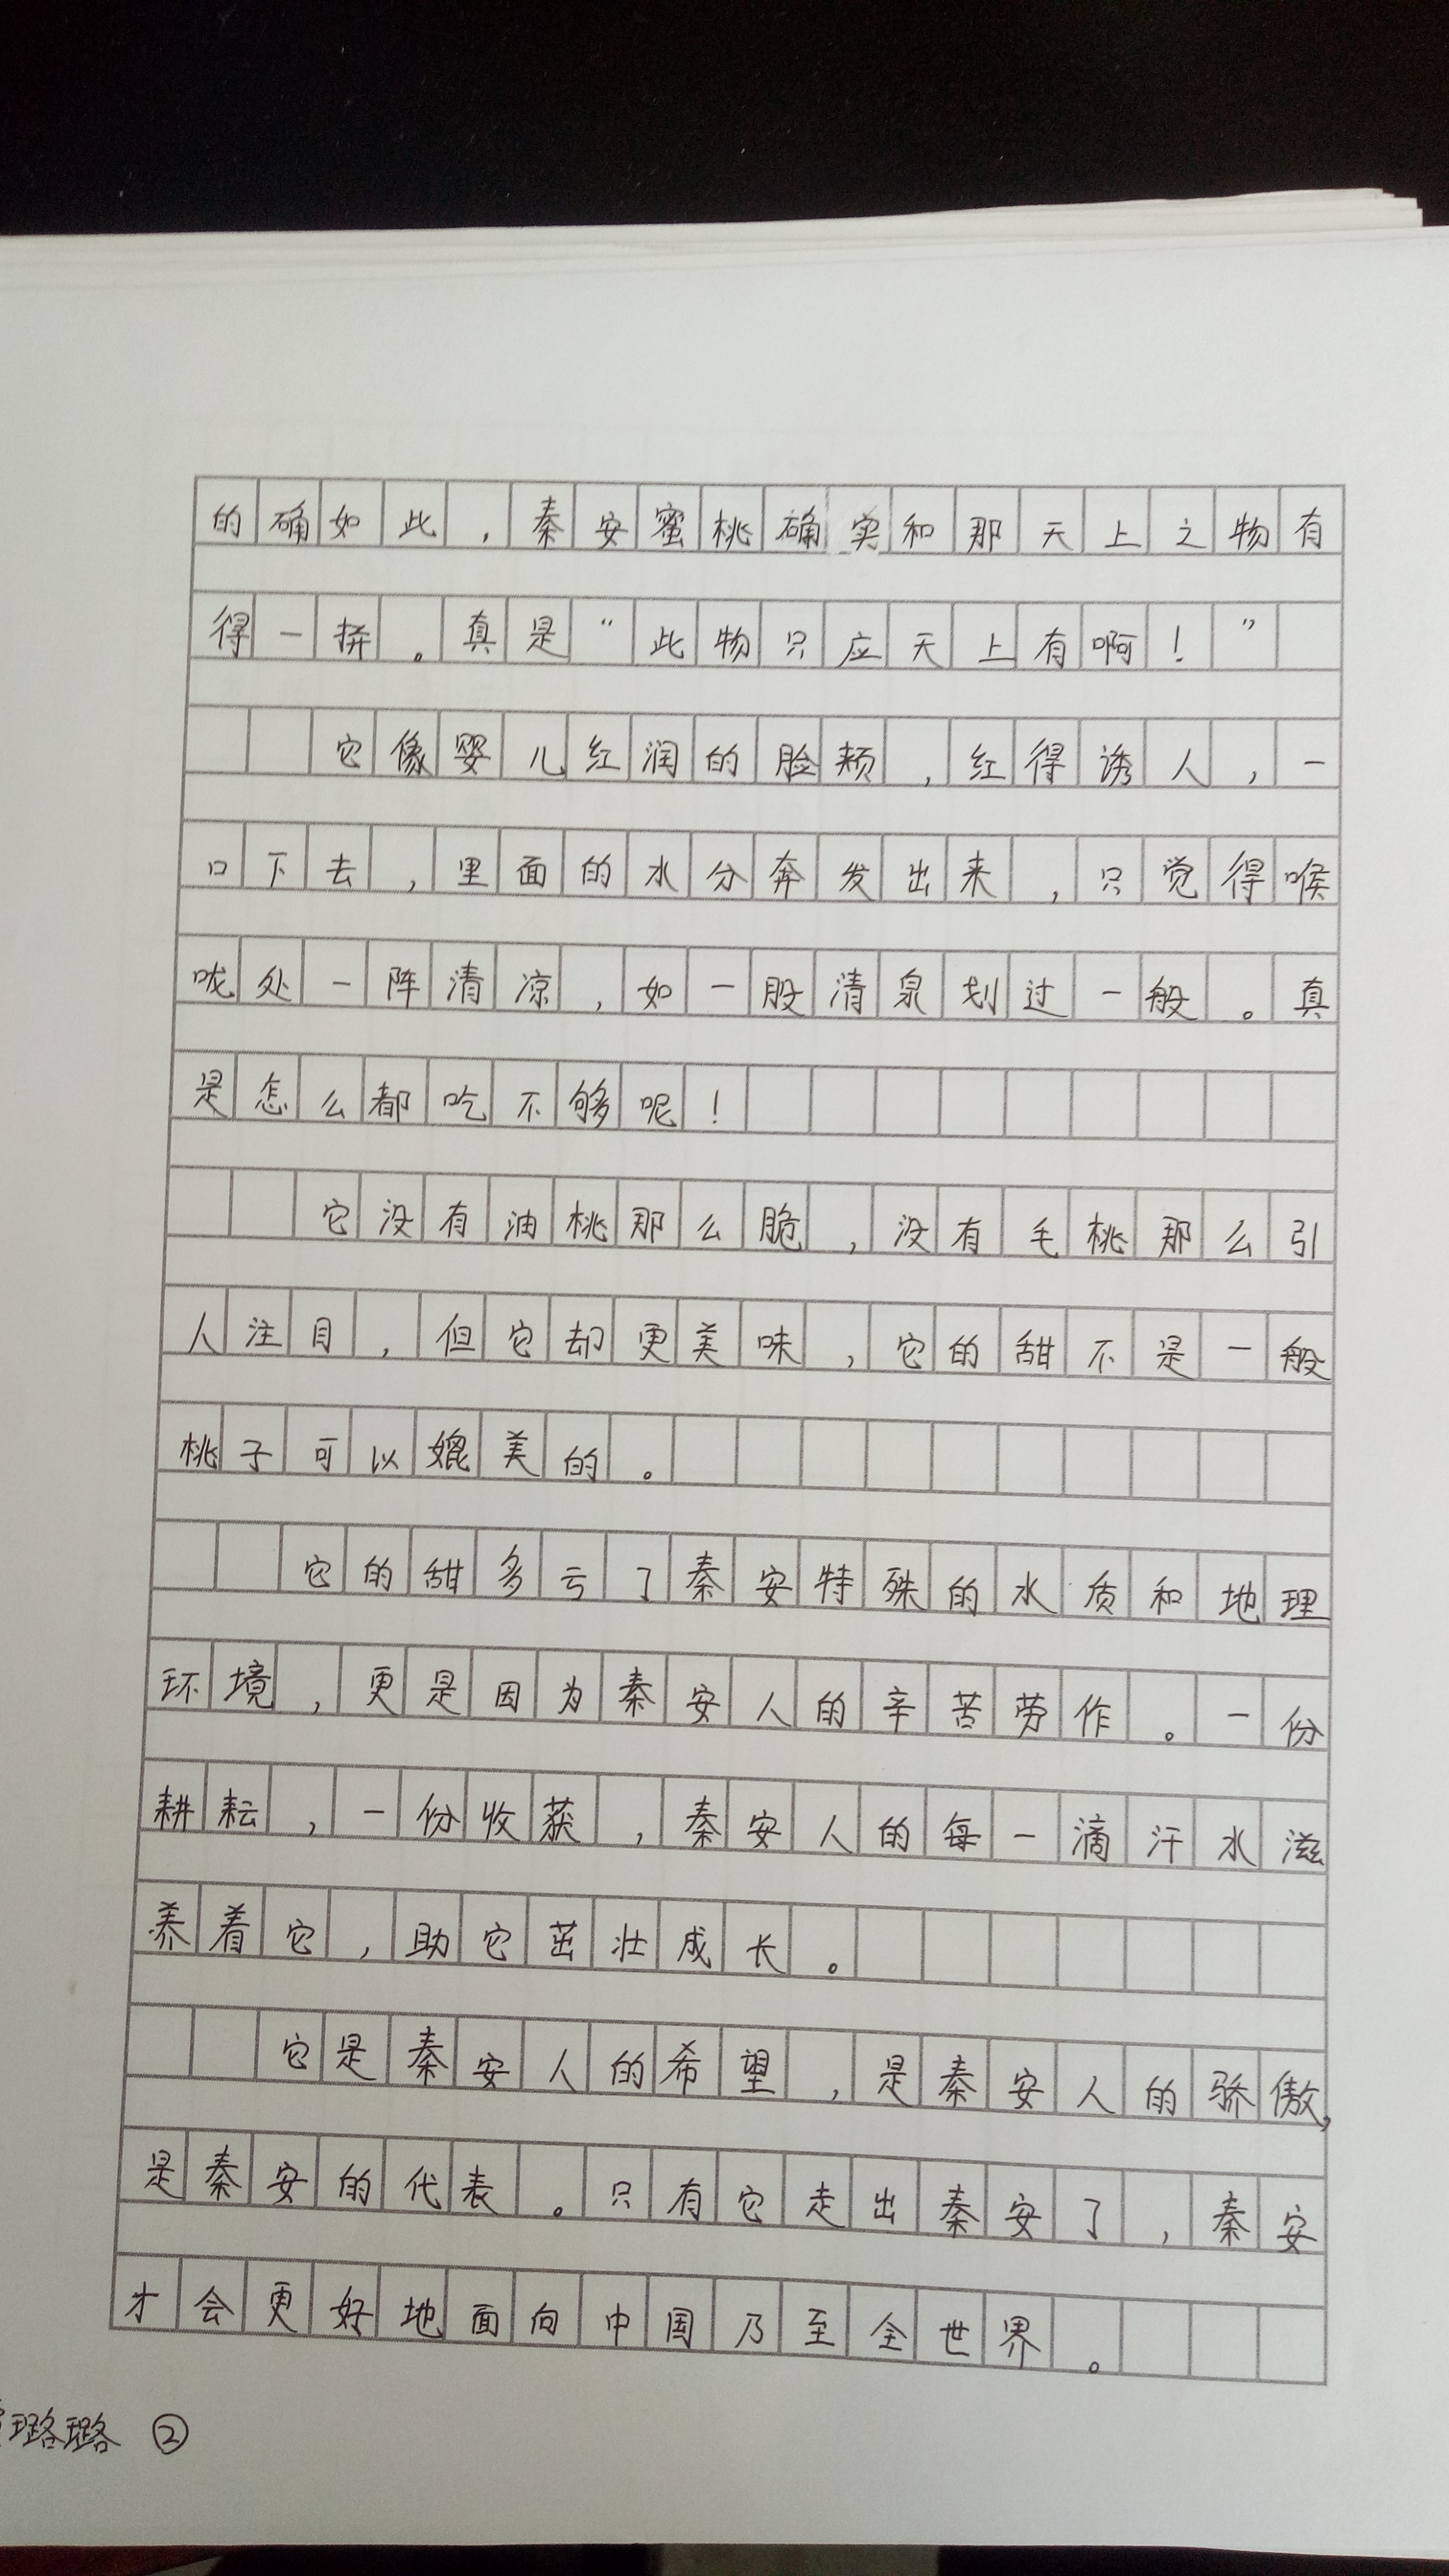 的确如此，秦安蜜桃确实和那天上之物有
得一拼。真是“此物只应天上有啊！”
它像婴儿红润的脸颊，红得诱人，一
口下去，里面的水分奔发出来，只觉得喉
咙处一阵清凉，如一股清泉划过一般。真
是怎么都吃不够呢！
它没有油桃那么脆，没有毛桃那么引
人注目，但它却更美味，它的甜不是一般
桃子可以媲美的。
它的甜多亏了秦安特殊的水质和地理
环境，更是因为秦安人的辛苦劳作。一份
耕耘，一份收获，秦安人的每一滴汗水滋
养着它，助它茁壮成长。
它是秦安人的希望，是秦安人的骄傲，
是秦安的代表。只有它走出秦安了，秦安
才会更好地面向中国乃至全世界。
璐璐 ②